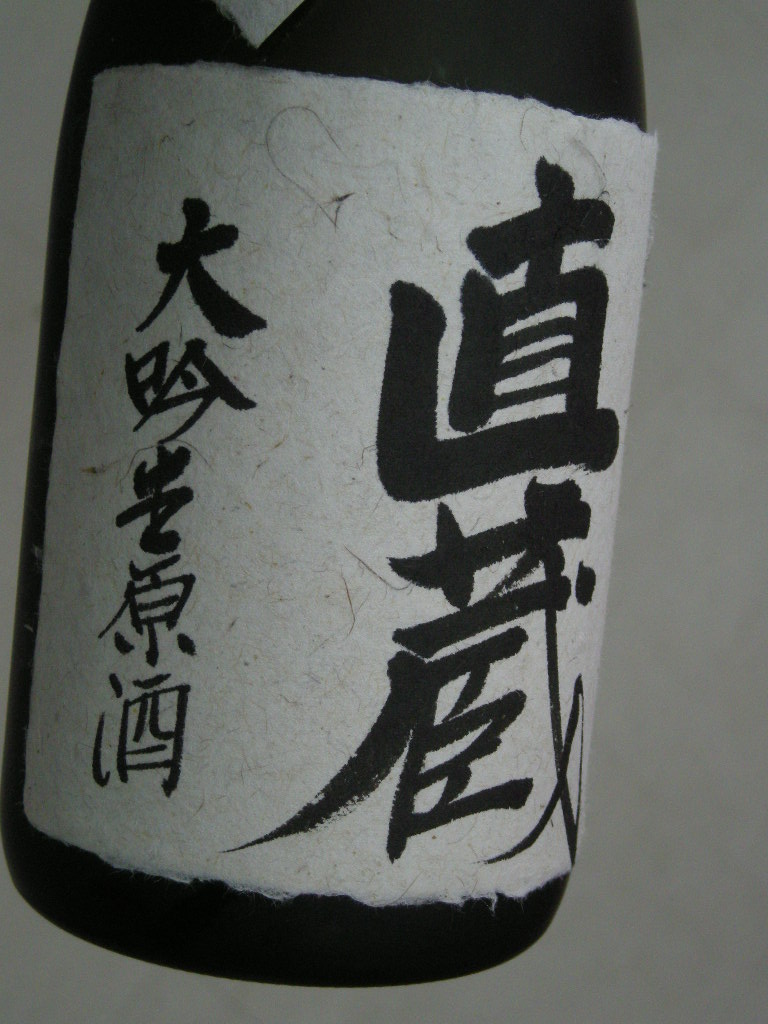 直蔵
大吟生原酒